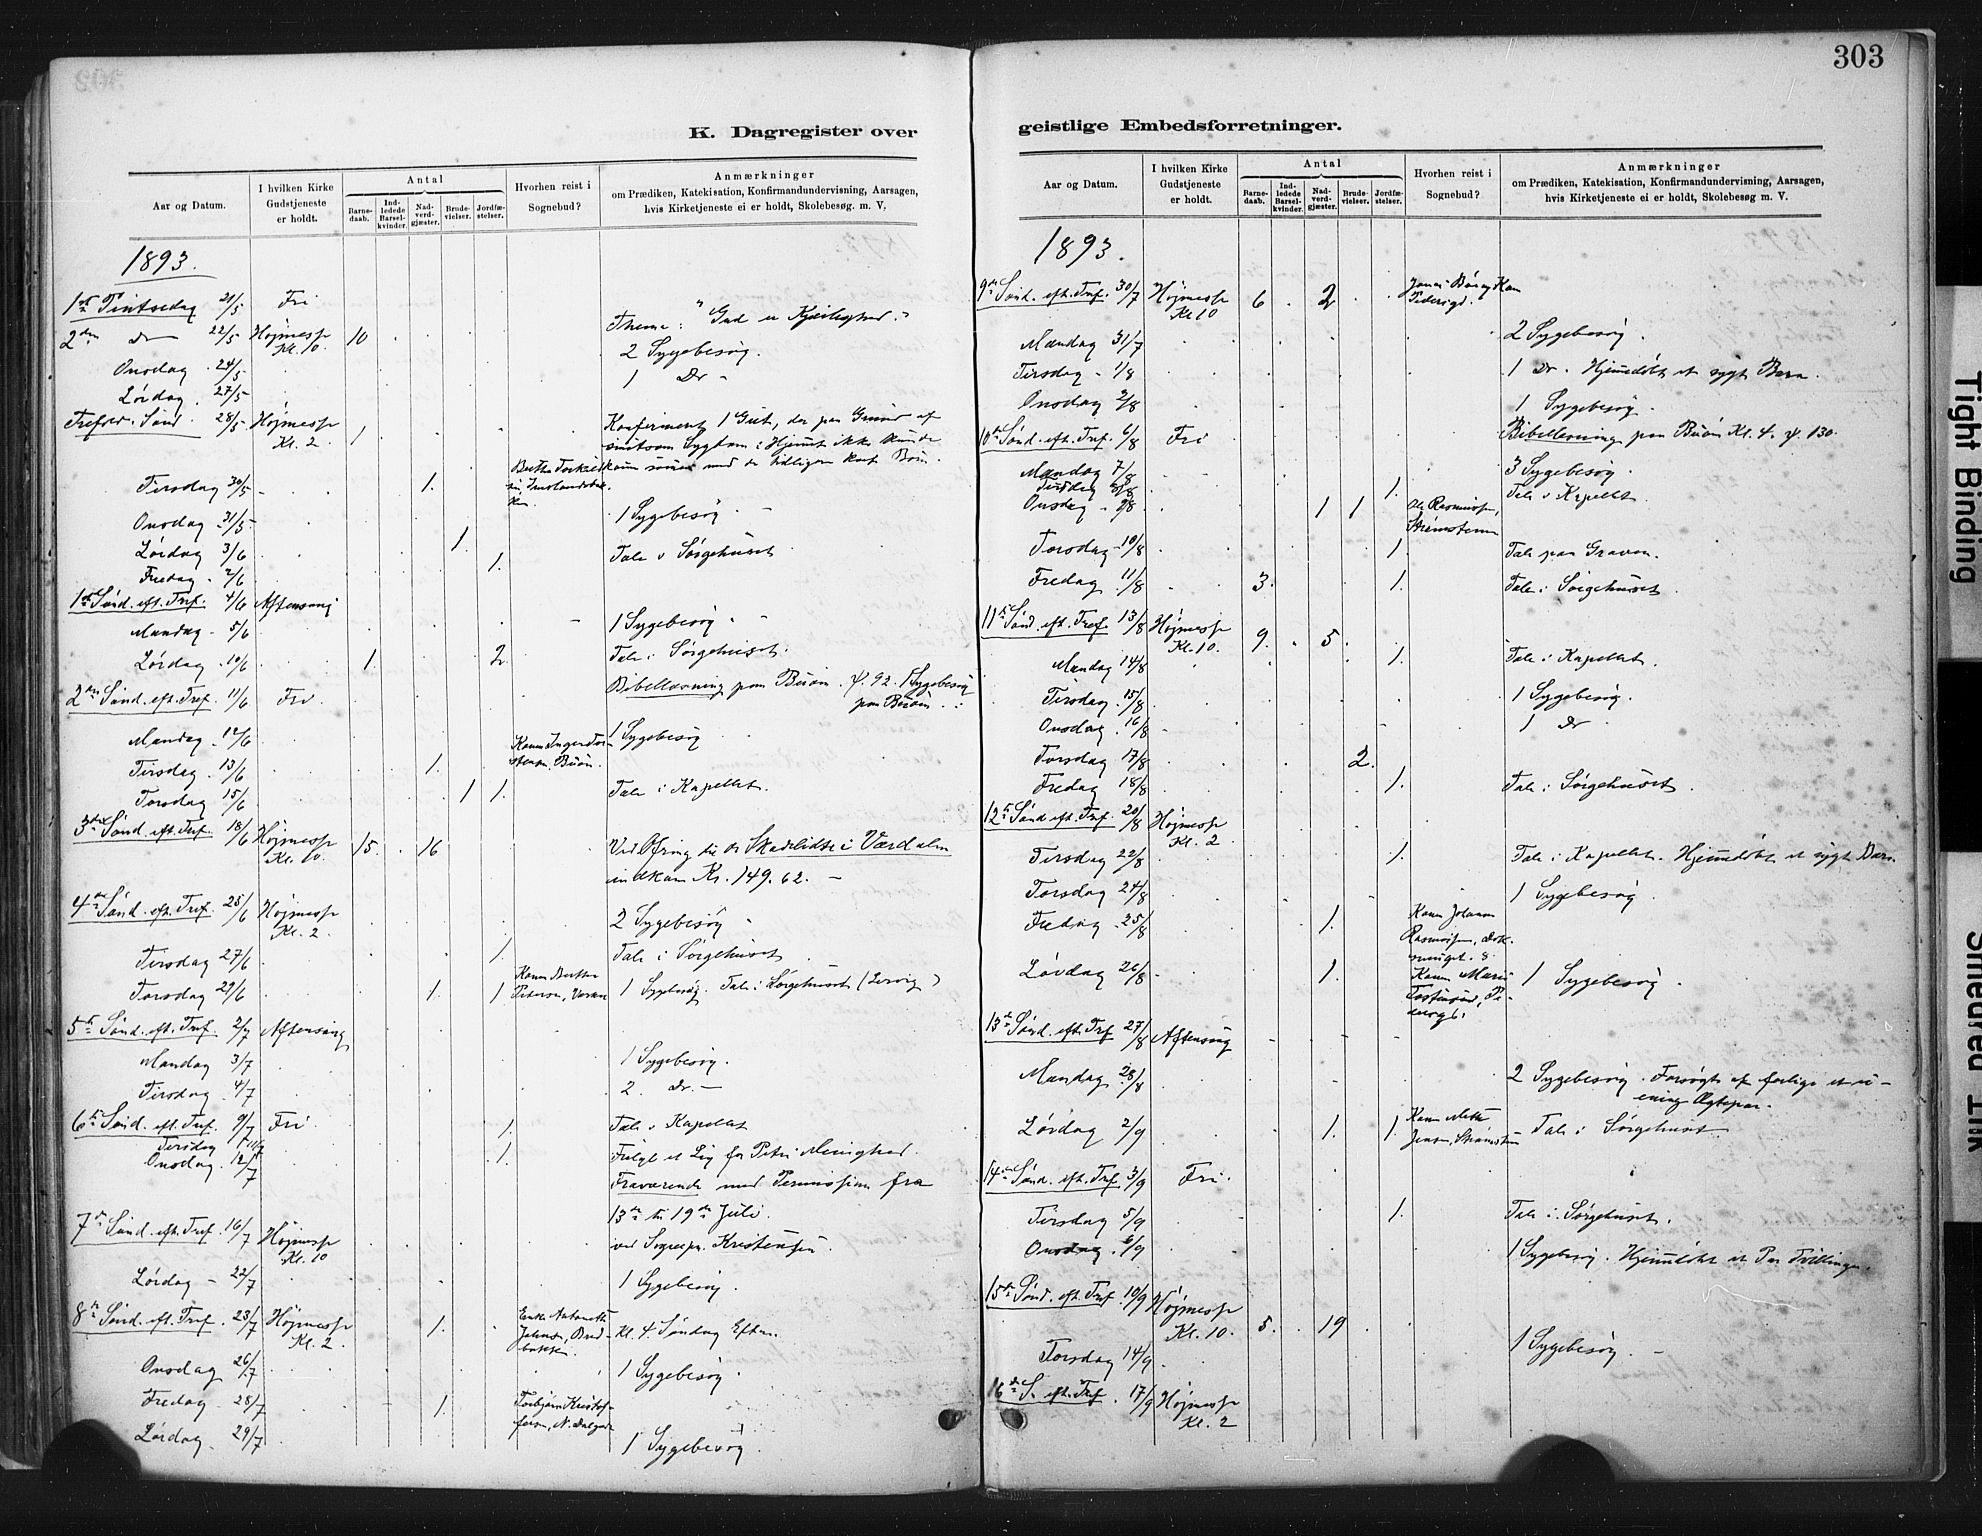 303
K. Dagregister over
Aar og Datum.
I hvilken Kirke Gudstjeneste er holdt.
Antal
Barnedaab.
Indledede Barselkvinder.
Nadverdgjæster.
Brudevielser.
Jordfæstelser.
Hvorhen reist i Sognebud?
Anmærkninger
om Prædiken, Katekisation, Konfirmandundervisning, Aarsagen,
hvis Kirketjeneste ei er holdt, Skolebesøg. m. V.
1893.
1ste Pintsedag 21/5 Fri
Thema: "Gud er Kjærlighed."
2den do 22/5 Højmesse Kl. 10. 10
Onsdag 24/5 2 Sygebesøg.
Lørdag 27/5 1 Do -
Trefold. Sønd. 28/5 Højmesse Kl. 2. 1
Konfirmeret 1 Gut, der paa Grund af
smitsom Sygdom i Hjemet ikke kunde
Tirsdag 30/5 1.
Onsdag 31/5 1 Sygebesøg
Lørdag 3/6 1.
Fredag 2/6 1. Tale i Sørgehuset
1ste Sønd. eft. Tref. 4/6 Aftensang
Mandag 5/6 1 Sygebesøg
Lørdag 10/6 1. 2 Tale i Sørgehuset.
2den Sønd. eft. Tref. 11/6 Fri Bibellæsning paa Buøen ψ. 92. 1 Sygebesøg
paa Buøen
Mandag 12/6 1 Sygebesøg
Tirsdag 13/6 1.
Torsdag 15/6 1 1. Tale i Kapellet.
3die Sønd. eft. Tref. 18/6 Højmesse Kl. 10. 15. 16 Ved Ofring til de Skadelidte i Værdalen
indkom Kr. 149.62. -
4de Sønd. eft. Tref. 25/6 Højmesse Kl. 2. 2 Sygebesøg
Tirsdag 27/6 1. Tale i Sørgehuset
Torsdag 29/6 1. 1 1 Sygebesøg. Tale i Sørgehuset
5te Sønd. eft. Tref. 2/7 Aftensang
Mandag 3/7 1 Sygebesøg.
Tirsdag 4/7 2 Do. -
6te Sønd. eft. Tref. 9/7 Fri.
Tirsdag 11/7 1. Tale i Kapellet
Onsdag 12/7 1. Fulgt et Lig for Petri Menighed.
Fraværende med Permission fra
13de til 19de Juli.
7de Sønd. eft. Tref. 16/7 Højmesse Kl. 10 ved Sognepr. Kristensen.
Lørdag - 22/7 1 Sygebesøg.
8de Sønd. eft. Tref. 23/7 Højmesse Kl. 2 1. Kl. 4 Søndag Efterm.
Onsdag 26/7 1 Sygebesøg.
Fredag 28/7 1.
Lørdag. 29/7 1 Sygebesøg.
geistlige Embedsforretninger.
Aar og Datum.
I hvilken Kirke Gudstjeneste er holdt.
Antal
Barnedaab.
Indledede Barselkvinder.
Nadverdgjæster.
Brudevielser.
Jordfæstelser.
Hvorhen reist i Sognebud?
Anmærkninger
om Prædiken, Katekisation, Konfirmandundervisning, Aarsagen,
hvis Kirketjeneste ei er holdt, Skolebesøg m. V.
1893.
9de Sønd. eft. Tref. 30/7 Højmesse Kl. 10 6 2
Mandag 31/7 2 Sygebesøg.
Tirsdag - 1/8 1 Do. Hjemmedøbt et sygt Barn.
Onsdag 2/8 1 Sygebesøg.
10de Sønd. eft. Tref. 6/8 Fri Bibellæsning paa Buøen Kl. 4. ψ. 130.
Mandag 7/8 3 Sygebesøg.
Tirsdag 8/8 1. Tale i Kapellet.
Onsdag - 9/8 1 1 Ole Rasmussen,
Torsdag - 10/8 1. Tale paa Graven.
Fredag 11/8 3. 1. Tale i Sørgehuset.
11te Sønd. eft. Tref. 13/8 Højmesse Kl. 10. 9. 5.
Mandag 14/8 1. Tale i Kapellet.
Tirsdag 15/8 1 Sygebesøg.
Onsdag 16/8 1 Do
Torsdag 17/8 2.
Fredag 18/8 1. Tale i Sørgehuset.
12te Sønd. eft. Tref. 20/8 Højmesse Kl. 2
Tirsdag 22/8 1. Tale i Kapellet. Hjemmedøbt et sygt Barn.
Torsdag 24/8 1 Sygebesøg.
Fredag 25/8 1.
Lørdag 26/8 1. 1 Sygebesøg.
13de Sønd. eft. Tref 27/8 Aftensang
Mandag 28/8 2 Sygebesøg. Forsøgt at forlige et u-
enigt Ægtepar.
Lørdag 2/9 1. 1. Tale i Sørgehuset
14de Sønd. eft. Tref. 3/9 Fri.
Tirsdag 5/9 1. Tale i Sørgehuset.
Onsdag 6/9 1 Sygebesøg. Hjemmedøbt et Par Tvillinger.
15de Sønd. eft. Tref. 10/9 Højmesse Kl. 10. 5. 19
Torsdag 14/9 1 Sygebesøg. -
16de S. eft. Tref. 17/9 Højmesse Kl. 2
Tight Binding
Smeared Ink